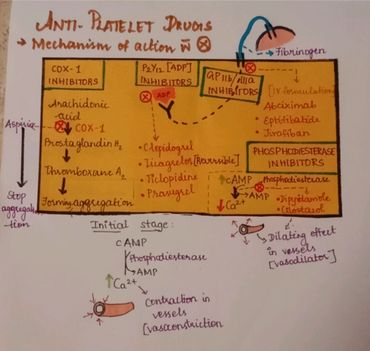 ANTI-PLATELET DRUGS
→ Mechanism of action w̄ ⊗
Fibrinogen
COX-1
INHIBITORS
Arachidonic
acid
Aspirin
COX-1
Prostaglandin H2
Thromboxane A2
Forming aggregation
Stop
aggregation
P2Y12 [ADP]
INHIBITORS
ADP
• Clopidogrel
• Ticagrelor [Reversible]
• Ticlopidine
• Prasugrel
GP IIb/IIIa
INHIBITORS
[IV formulation]
Abciximab
• Eptifibatide
• Tirofiban
PHOSPHODIESTERASE
INHIBITORS
↑ cAMP
Phosphodiesterase
→ AMP
↓ Ca2+
• Dipyridamole
• Cilostazol
Dilating effect
in vessels
[vasodilator]
Initial stage:
cAMP
Phosphodiesterase
→ AMP
↑ Ca2+
Contraction in
vessels
[vasoconstriction